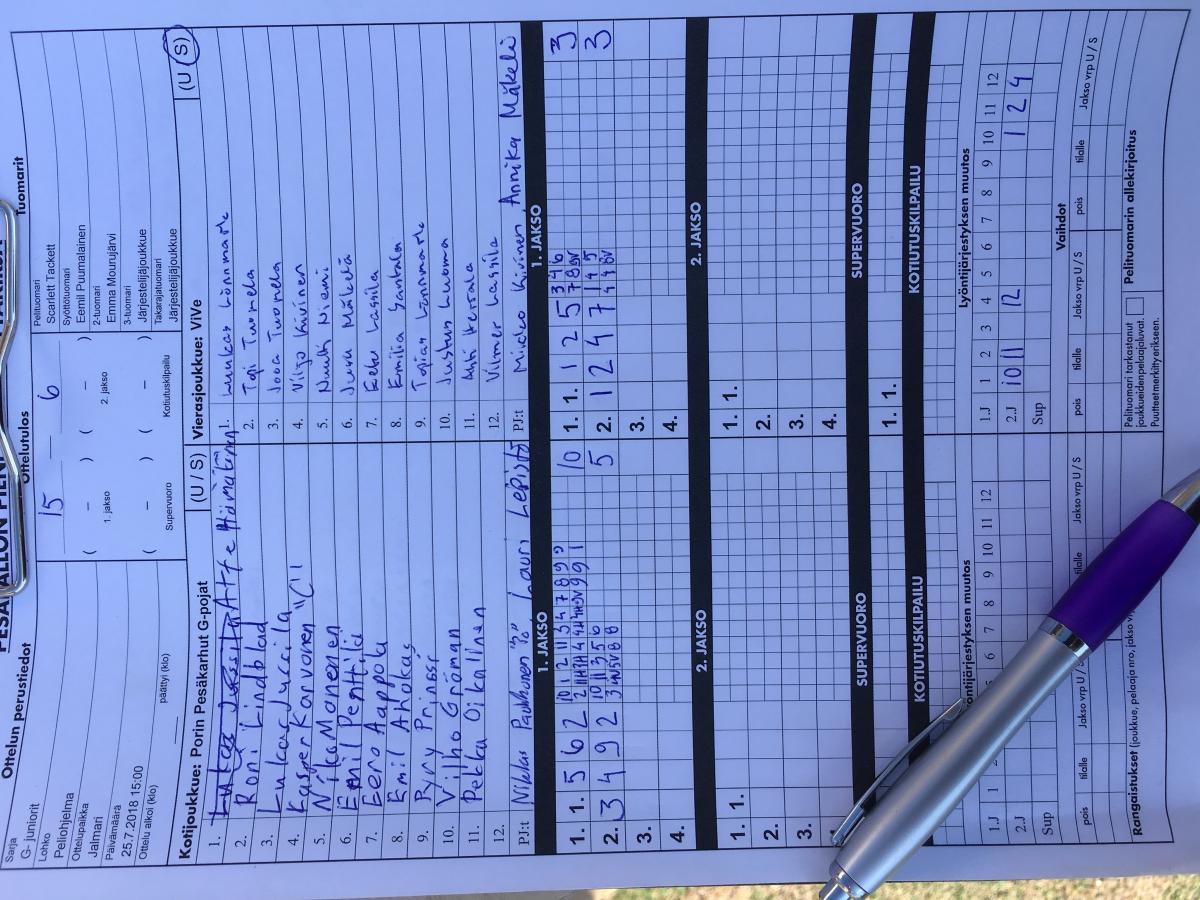 Ottelun perustiedot
Sarja
G- juniorit
Lohko
Peliohjelma
Ottelupaikka
Jalmari
Päivämäärä
25.7.2018 15:00
Ottelu alkoi (klo)
päättyi (klo)
Ottelutulos
15 – 6
( – ) ( – )
1. jakso 2. jakso
( – ) ( – )
Supervuoro Kotiutuskilpailu
Tuomarit
Pelituomari
Scarlett Tackett
Syöttötuomari
Eemil Puumalainen
2-tuomari
Emma Mourujärvi
3-tuomari
Järjestelijäjoukkue
Takarajatuomari
Järjestelijäjoukkue
Kotijoukkue: Porin Pesäkarhut G-pojat (U / S)
1. Atte Hämäläinen
2. Roni Lindblad
3. Lukas Jussila
4. Kasper Karvonen "C"
5. Niko Manonen
6. Emil Penttilä
7. Eero Aappola
8. Emil Ahokas
9. Pyry Prinssi
10. Vilho Gröman
11. Pekka Oikallinen
12.
PJ:t Niklas Paukkunen Lauri Lepistö
Vierasjoukkue: ViVe (U / S)
1. Luukas Lönnmark
2. Topi Tuomela
3. Jooa Tuomela
4. Viljo Kivinen
5. Nuutti Niemi
6. Juuu Mäkelä
7. Eelu Lassila
8. Emilia Santala
9. Topias Lönnmark
10. Justus Luoma
11. Ahti Herrala
12. Vilmer Lassila
PJ:t Mirkko Kivinen, Annika Mäkelä
1. JAKSO
1. 1. 5 6 2 10
2. 3 4 9 2 5
3.
4.
2. JAKSO
1. 1.
2.
3.
SUPERVUORO
KOTIUTUSKILPAILU
1. JAKSO
1. 1. 1 2 5 3
2. 1 2 4 7 3
3.
4.
2. JAKSO
1. 1.
2.
3.
4.
SUPERVUORO
1. 1.
KOTIUTUSKILPAILU
6 7 8 9 10 11 12
1.J 1
2.J
Sup
pois tilalle Jakso vrp U / S tilalle Jakso vrp U / S
Rangaistukset (joukkue, pelaaja nro, jakso
Lyöntijärjestyksen muutos
1 2 3 4 5 6 7 8 9 10 11 12
1.J
2.J 10 11 12 1 2 4
Sup
Vaihdot
pois tilalle Jakso vrp U / S pois tilalle Jakso vrp U / S
Pelituomari tarkastanut
joukkueidenpelaajaluvat.
Puutteetmerkittyerikseen.
Pelituomarin allekirjoitus